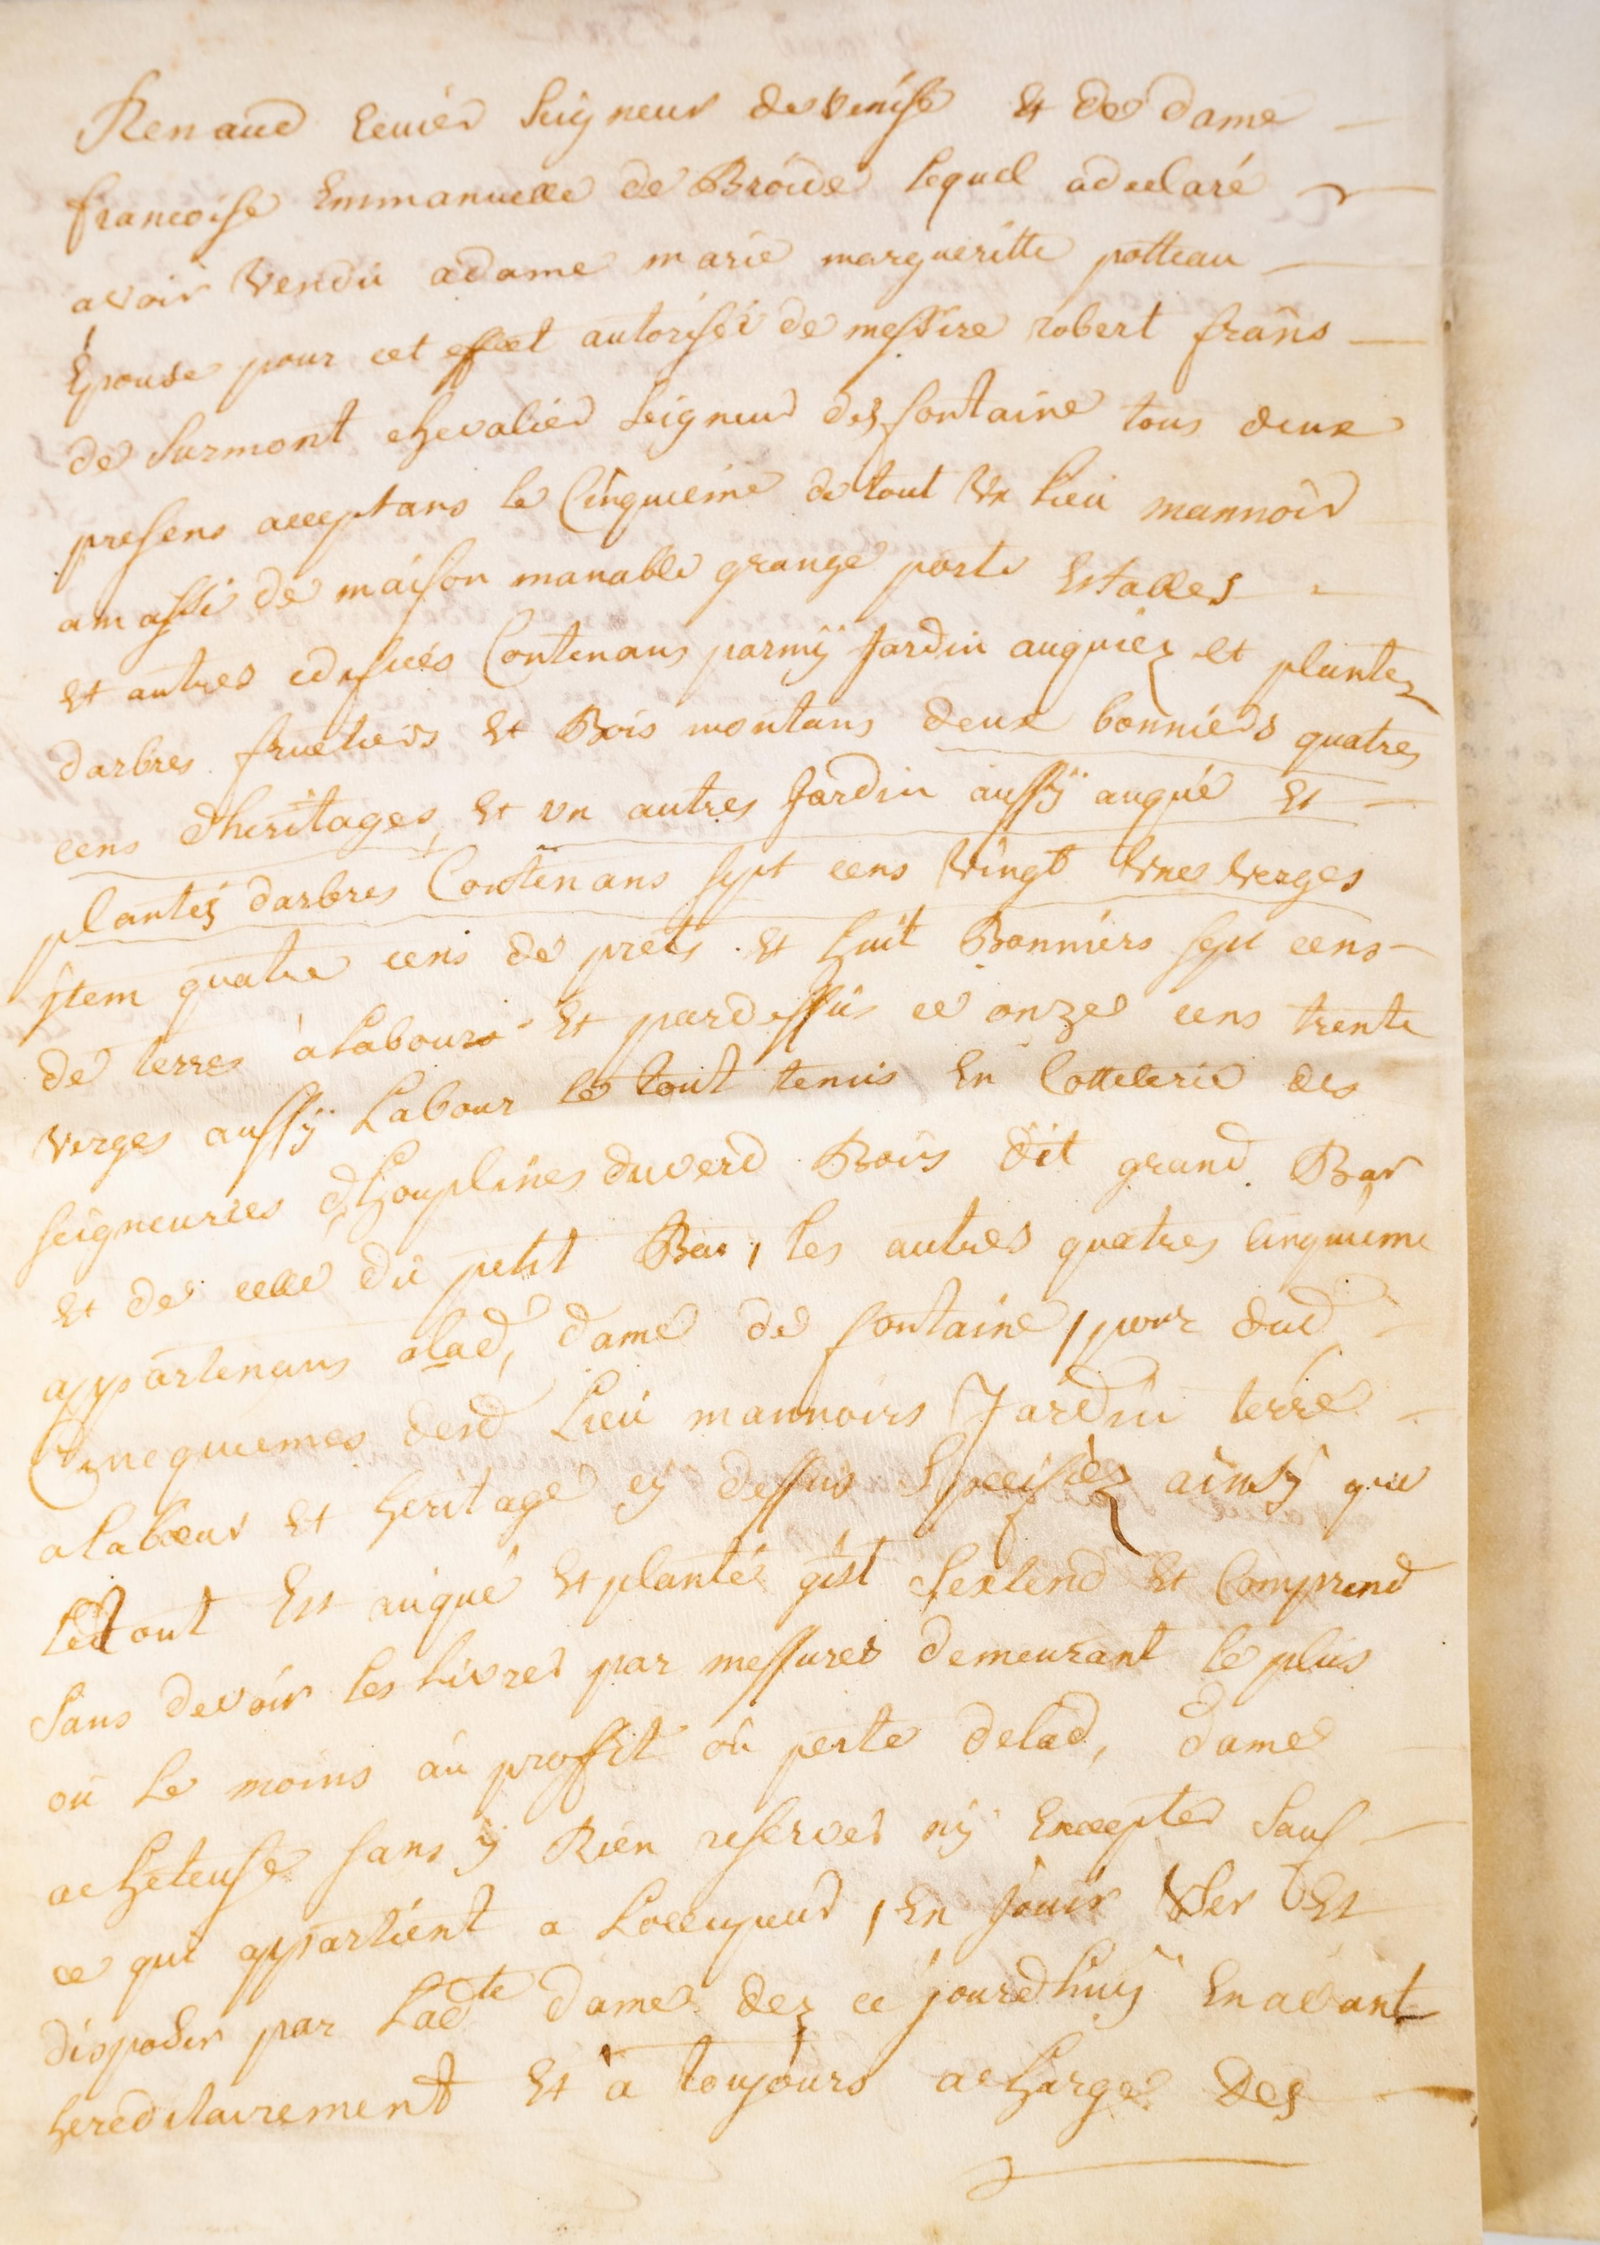 Renaud Ecuier Seigneur de Venise Et de dame
francoise Emmanuelle de Broide lequel adeclaré
avoir Vendu adame marie margueritte potteau
Epouse pour cet effect autorisée de messire robert frans
de Surmont chevalier Seigneur des fontaine tous deux
presens acceptans le Cinquieme de tout Un lieu mannoir
amassé de maison manable grange porte Estables
Et autres edifices Contenans parmÿ Jardin auquiez et plantez
darbres fructiers Et Bois montans deux bonniers quatres
cens dheritages, Et un autres Jardin aussÿ auqué Et
plantés darbres Contenans sept cens Vingt Unes Verges
Jtem quatre cens de prets Et huit Bonniers sept cens
de terres àlabour Et pardessus ce onze cens trente
Verges aussÿ Labour le tout tenus En Cotterie des
seigneuries dhouplines duverd Bois dit grand Bar
Et de celle du petit Bar, les autres quatres Cinquieme
appartenans alad, dame de fontaine, pour dud
Cincquiemes desd Lieu mannoirs Jardin terre
alabœur Et heritage cÿ dessus Specifiéz ainsÿ que
Ledtout Est auqué Et planté gist Sextend Et Comprend
Sans devoir les livrer par messures demeurant le plus
ou le moins au proffit ou perte delad, dame
acheteuse sans ÿ Rien reserver nÿ Excepter Sauf
ce qui appartient a Loccupeur, En Jouir User Et
disposer par Ladte dame dez ce jourdhuÿ Enavant
hereditairement Et à toujours acharge Des